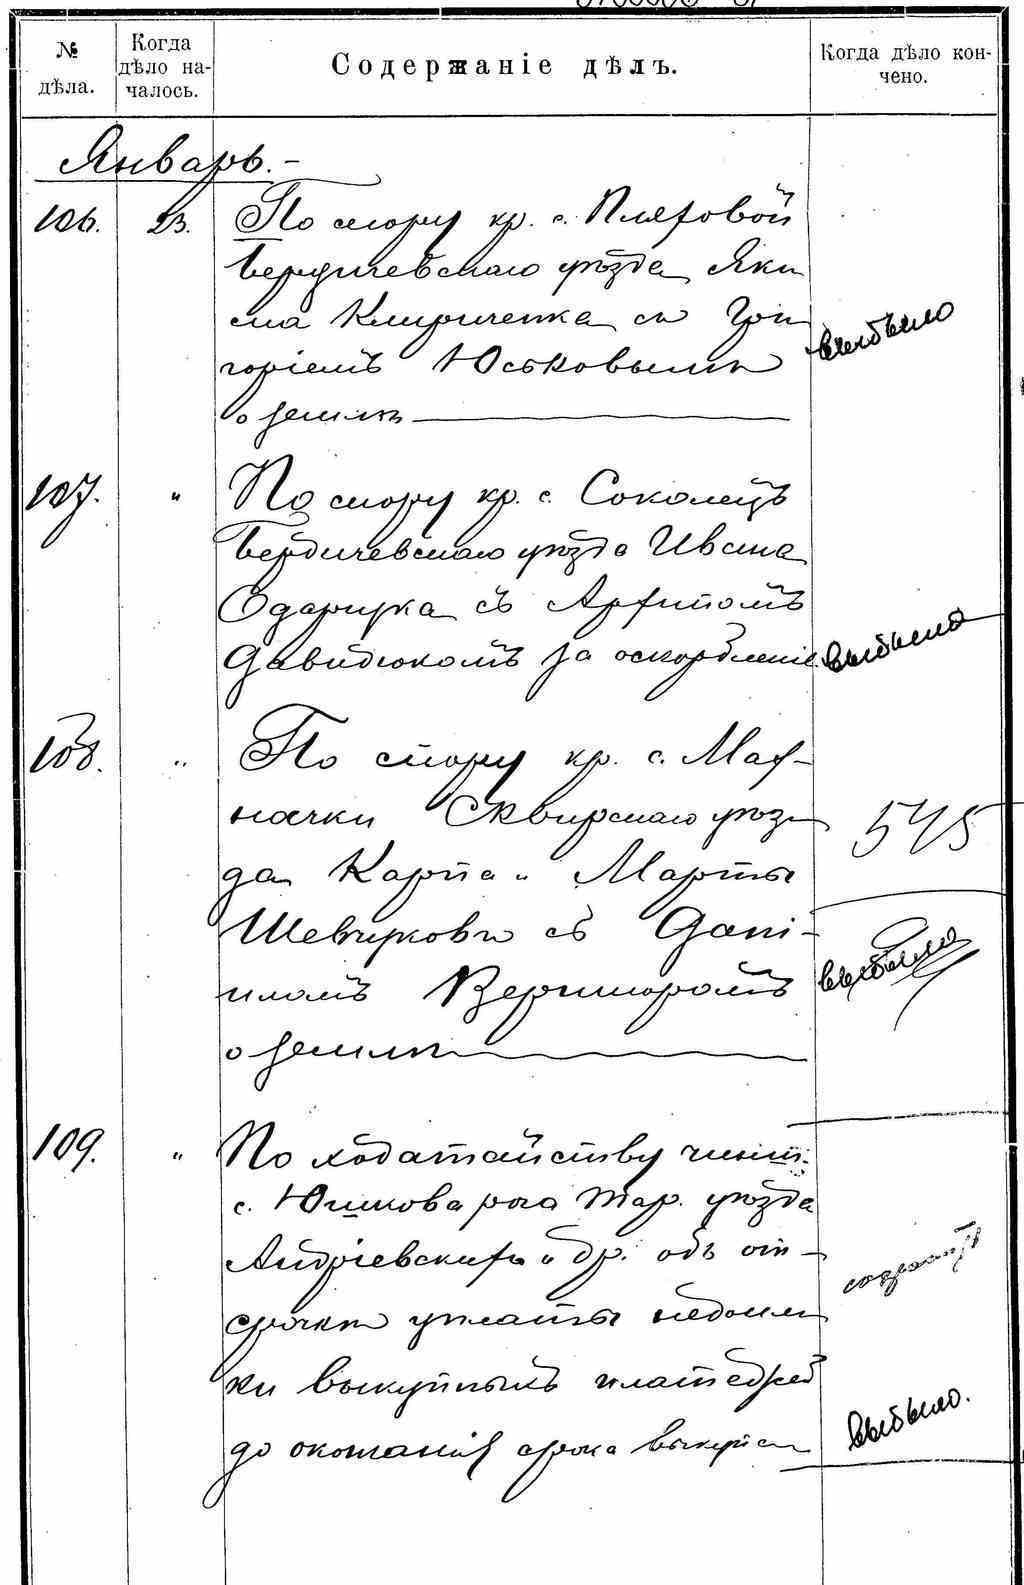 № дѣла.
Когда дѣло на-чалось.
Содержаніе дѣлъ.
Когда дѣло кон-чено.
Январь.-
106. 23. По спору кр. с. Пляховой
Бердичевскаго уѣзда Яки
ма Клириченка съ Гри
горіемъ Юськовымъ
о землѣ
выбыло
107. " По спору кр. с. Соколецъ
Бердичевскаго уѣзда Ивана
Одарчука съ Архипомъ
Давидюкомъ за оскорбленіе
выбыло
108. " По спору кр. с. Мах-
начки Сквирскаго уѣз-
да Карпа и Марты
Шевчуковъ съ Дані-
иломъ Вернигоромъ
о землѣ
545
выбыло
109. " По ходатайству чинш.
с. Юшкова рога Тар. уѣзда
Андріевскихъ и др. объ от-
срочкѣ уплаты недоим
ки выкупныхъ платежей
до окончанія срока выкупа
выбыло.